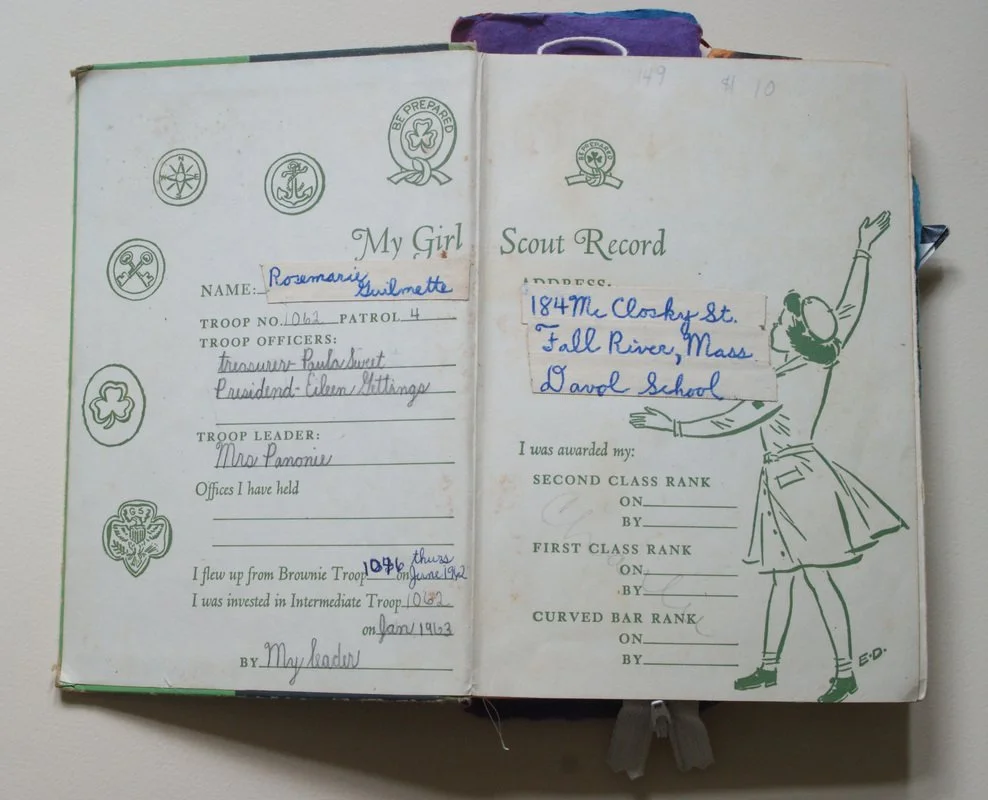 149 $ 10
BE PREPARED
BE PREPARED
N
E
S
W
My Girl Scout Record
NAME: Rosemarie Guilmette
TROOP NO. 1062 PATROL 4
TROOP OFFICERS:
treasurer- Paula Sweet
Presidend- Eileen Gettings
TROOP LEADER:
Mrs Panonie
Offices I have held
I flew up from Brownie Troop 1086 on thurs June 1962
I was invested in Intermediate Troop 1062
on Jan 1963
BY My leader
GS
ADDRESS:
184 Mc Closky St.
Fall River, Mass
Davol School
I was awarded my:
SECOND CLASS RANK
ON
BY
FIRST CLASS RANK
ON
BY
CURVED BAR RANK
ON
BY
E.D.